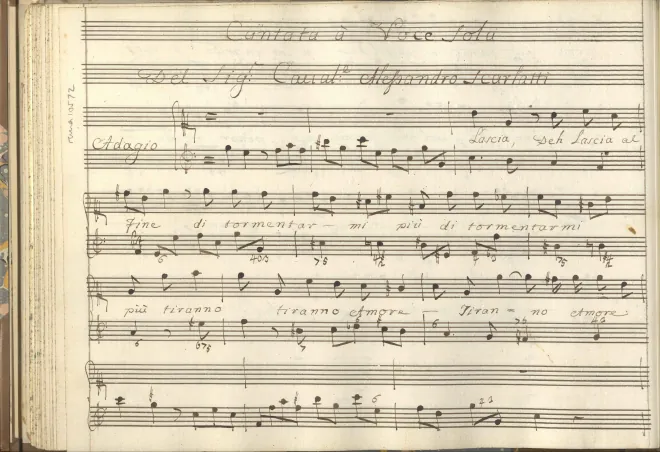 Cantata à Voce Sola
Del Sig.r Caual.e Alessandro Scarlatti
Adagio
Lascia, Deh Lascia al
Fine di tormentar - mi più di tormentarmi
più tiranno tiranno Amore - Tiran - no Amore